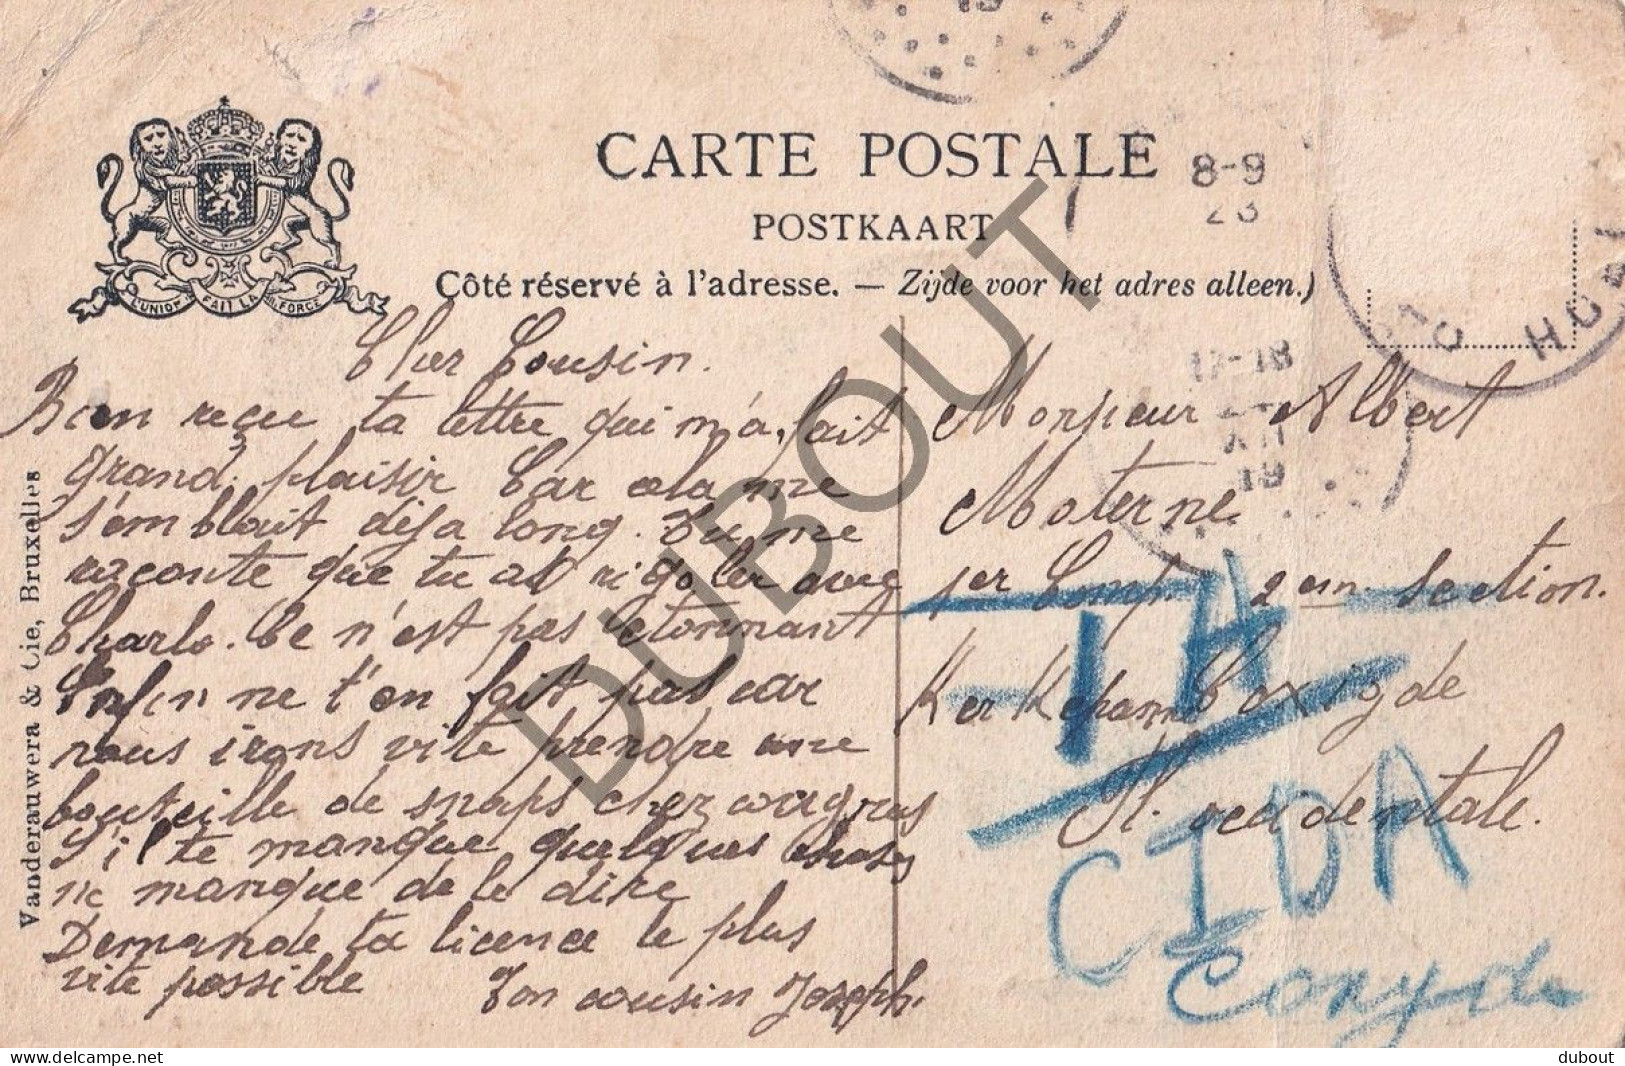 CARTE POSTALE
POSTKAART
Côté réservé à l'adresse. — Zijde voor het adres alleen.)
L'UNION FAIT LA FORCE
8-9
23
Cher Cousin.
Bien reçu ta lettre qui m'a fait
grand plaisir Car cela me
s'emblait déja long. Tu me
raconte que tu as rigoler avec
Charls. Ce n'est pas etonnant
Enfin ne t'en fait pas car
nous irons vite prendre une
bouteille de snaps chez
S'il te manque quelques choses
ne manque de le dire
Demande ta licence le plus
vite possible Ton cousin Joseph.
Monsieur Albert
Materne.
1er Comp. 2em section.
Coxigde
Fl. occidentale.
1 H
CIDA
Coxyde
17-18
XII
19
Vanderauwera & Cie, Bruxelles
DUBOUT
www.delcampe.net
dubout